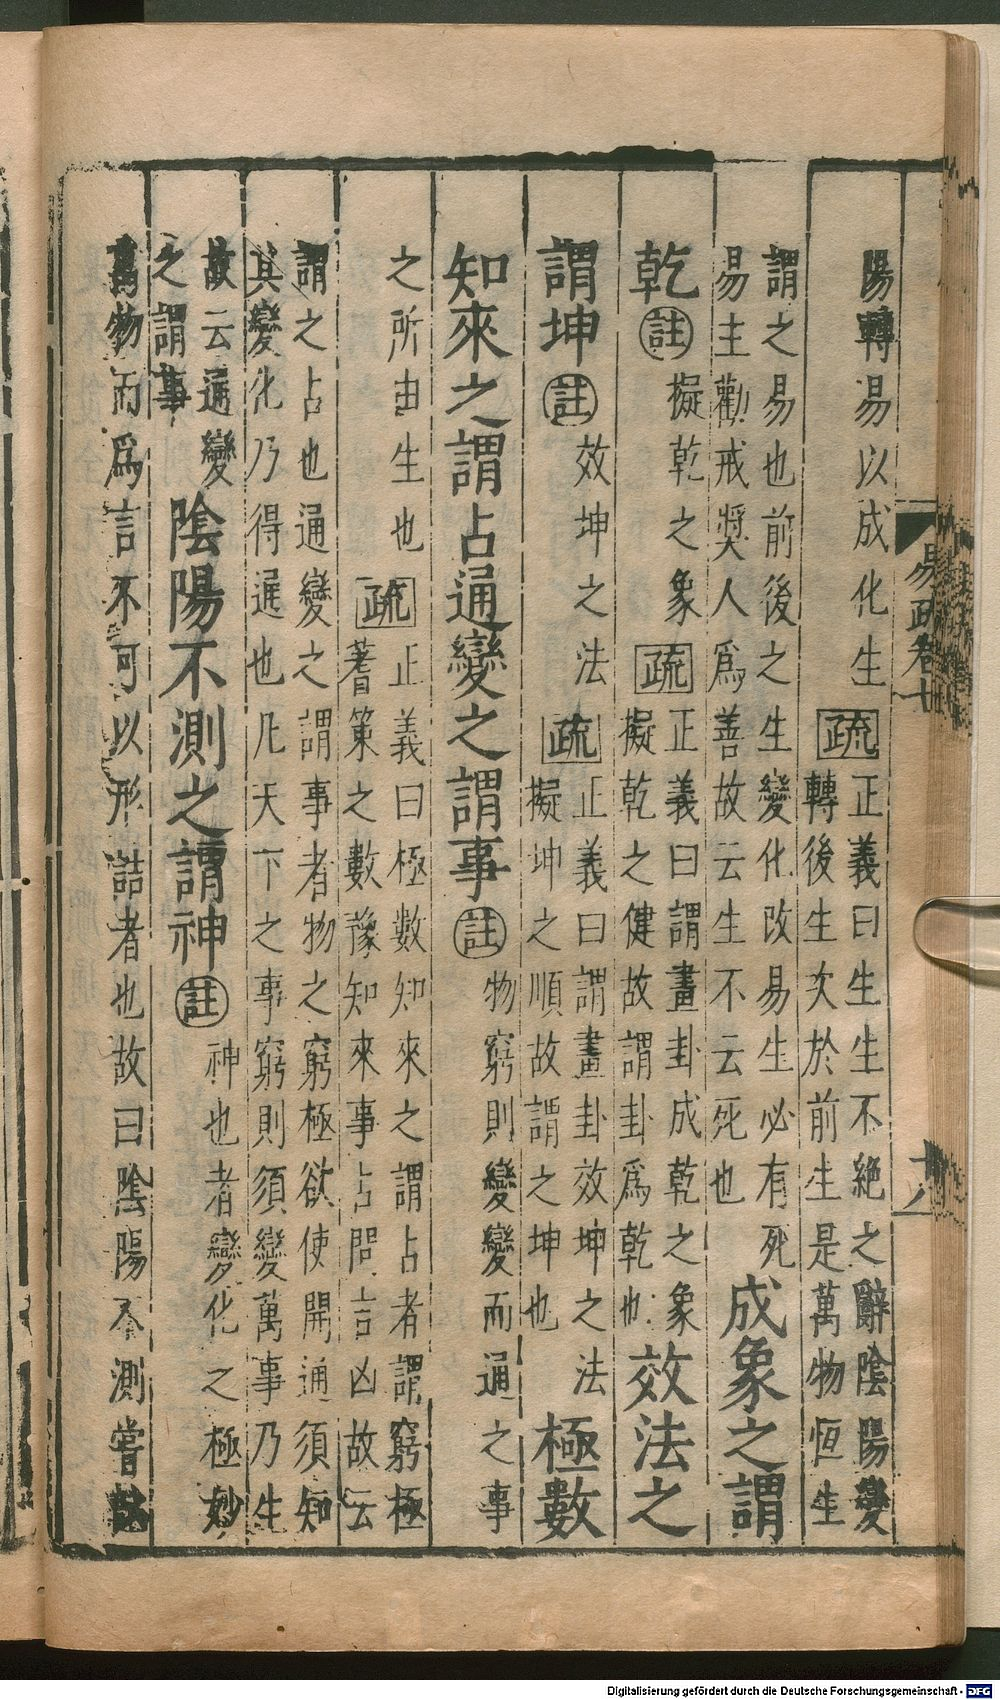 陽轉易以成化生
疏
正義曰生生不絶之辭陰陽變
轉後生次於前生是萬物恒生
謂之易也前後之生變化改易生必有死
易主勸戒奬人爲善故云生不云死也
成象之謂
乾註擬乾之象疏
正義曰謂畫卦成乾之象
擬乾之健故謂卦爲乾也
效法之
謂坤註效坤之法疏
正義曰謂畫卦效坤之法
擬坤之順故謂之坤也
極數
知來之謂占通變之謂事註物窮則變變而通之事
之所由生也疏
正義曰極數知來之謂占者謂窮極
蓍策之數豫知來事占問吉凶故云
謂之占也通變之謂事者物之窮極欲使開通須知
其變化乃得通也凡天下之事窮則須變萬事乃生
故云通變
之謂事
陰陽不測之謂神註神也者變化之極妙
萬物而爲言不可以形詰者也故曰陰陽不測嘗試
易疏卷七
十八
Digitalisierung gefördert durch die Deutsche Forschungsgemeinschaft - DFG